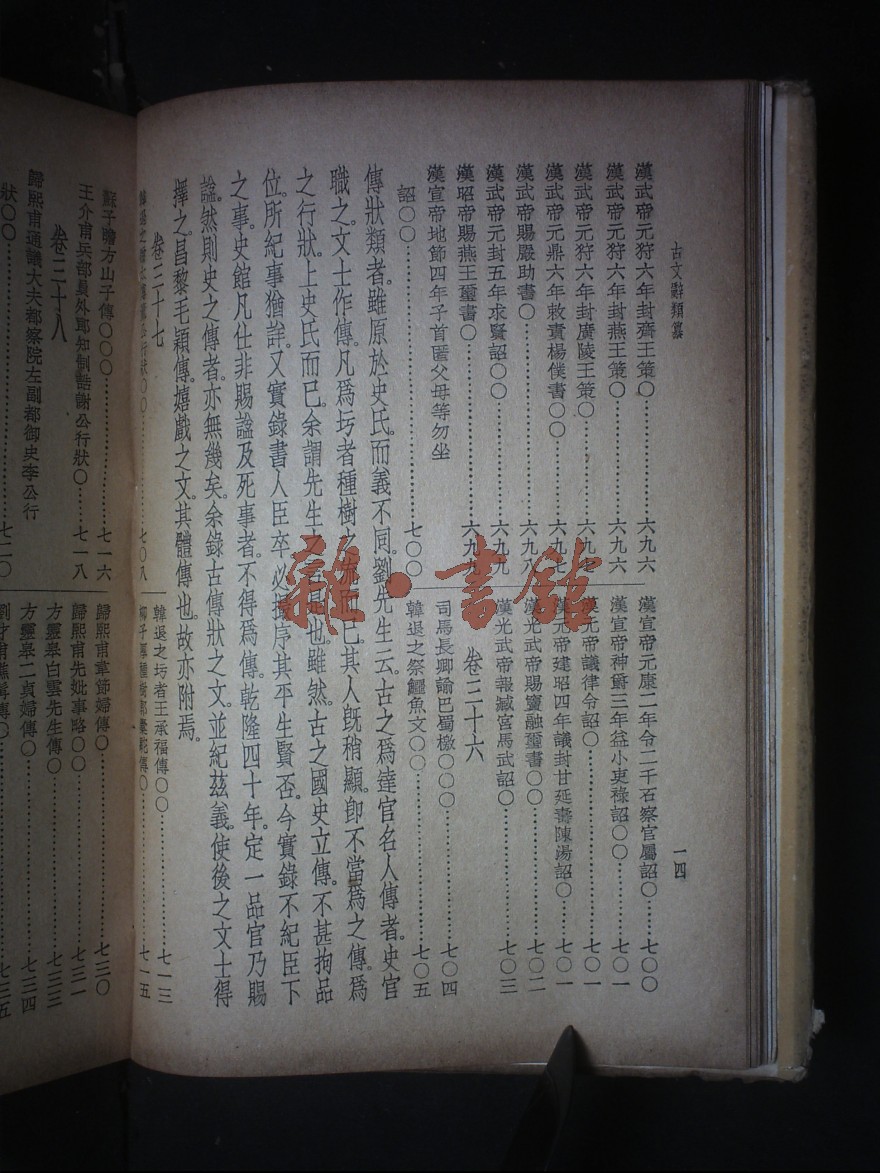 古文辭類纂
一四
漢武帝元狩六年封齊王策〇………六九六
漢武帝元狩六年封燕王策〇………六九六
漢武帝元狩六年封廣陵王策〇………六九七
漢武帝元鼎六年敕責楊僕書〇〇………六九七
漢武帝賜嚴助書〇………六九八
漢武帝元封五年求賢詔〇〇………六九九
漢昭帝賜燕王璽書〇………六九九
漢宣帝地節四年子首匿父母等勿坐
詔〇〇………七〇〇
漢宣帝元康二年令二千石察官屬詔〇………七〇〇
漢宣帝神爵三年益小吏祿詔〇〇………七〇一
漢元帝議律令詔〇………七〇一
漢元帝建昭四年議封甘延壽陳湯詔〇………七〇一
漢光武帝賜竇融璽書〇〇………七〇二
漢光武帝報臧宮馬武詔〇………七〇三
卷三十六
司馬長卿諭巴蜀檄〇〇〇………七〇四
韓退之祭鱷魚文〇〇………七〇五
傳狀類者。雖原於史氏。而義不同。劉先生云。古之爲達官名人傳者。史官
職之。文士作傳。凡爲圬者種樹之流而已。其人旣稍顯。卽不當爲之傳。爲
之行狀。上史氏而已。余謂先生之言是也。雖然。古之國史立傳。不甚拘品
位。所紀事猶詳。又實錄書人臣卒。必撮序其平生賢否。今實錄不紀臣下
之事。史館凡仕非賜謚及死事者。不得爲傳。乾隆四十年。定一品官乃賜
謚。然則史之傳者。亦無幾矣。余錄古傳狀之文。並紀茲義。使後之文士得
擇之。昌黎毛穎傳。嬉戲之文。其體傳也。故亦附焉。
卷三十七
行狀〇〇………七〇八
韓退之圬者王承福傳〇〇………七一三
柳子厚種樹郭橐駝傳〇………七一五
蘇子瞻方山子傳〇〇〇………七一六
王介甫兵部員外郎知制誥謝公行狀〇………七一八
卷三十八
歸熙甫通議大夫都察院左副都御史李公行
狀〇〇………七二〇
歸熙甫韋節婦傳〇………七三〇
歸熙甫先妣事略〇〇………七三一
方靈皋白雲先生傳〇………七三三
方靈皋二貞婦傳〇………七三四
劉才甫樵髯傳〇………七三五
雜·書館